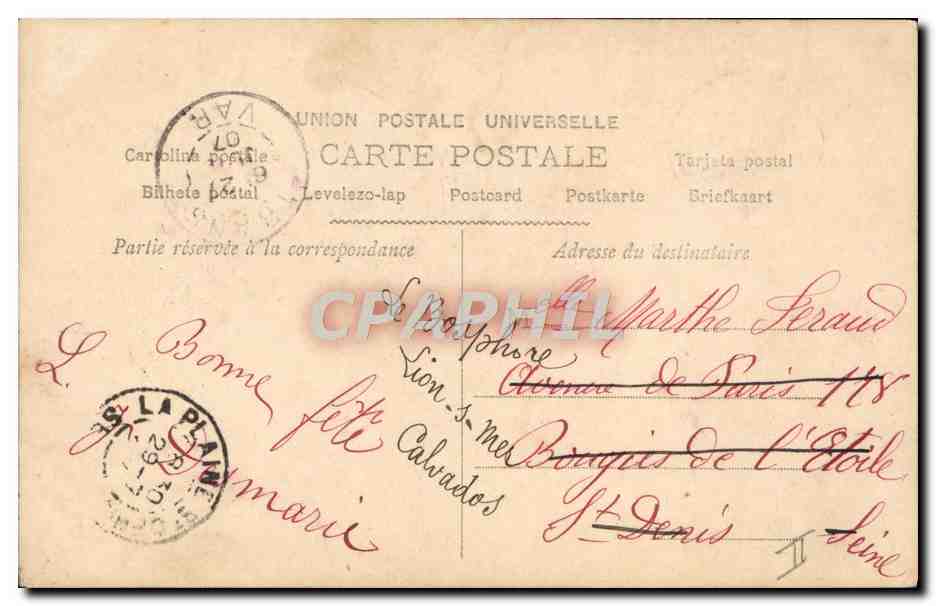 UNION POSTALE UNIVERSELLE
CARTE POSTALE
Cartolina postale
Tarjeta postal
Bilhete postal
Levelezo-lap
Postcard
Postkarte
Briefkaart
Partie réservée à la correspondance
Adresse du destinataire
VAR
07
CPARPHIL
Bonne
fête
L. Dumarie
LA PLAINE ST DENIS
29
Le Bosphore
Lion-s-mer
Calvados
Melle Marthe Feraud
Avenue de Paris 118
Bougies de l'Etoile
St Denis Seine
II